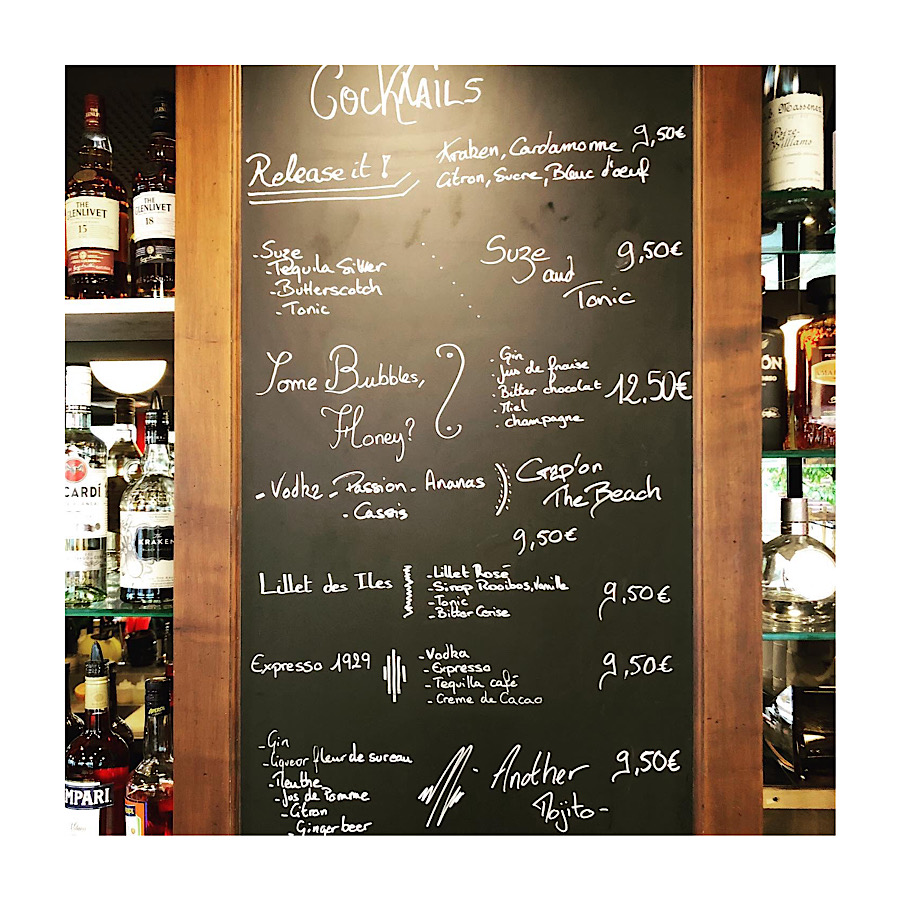 Cocktails
Release it !
Kraken, Cardamome 9,50€
Citron, Sucre, Blanc d'œuf
- Suze
- Tequila Silver
- Butterscotch
- Tonic
Suze and Tonic
9,50€
Some Bubbles,
Honey?
· Gin
· Jus de fraise
· Bitter chocolat
· Miel
· champagne
12.50€
- Vodka - Passion - Ananas
- Cassis
Crap'on
The Beach
9,50€
Lillet des Iles
- Lillet Rosé
- Sirop Rooibos, Vanille
- Tonic
- Bitter Cerise
9,50€
Expresso 1929
- Vodka
- Expresso
- Tequilla café
- Creme de Cacao
9,50€
- Gin
- Liqueur fleur de sureau
- Menthe
- Jus de Pomme
- Citron
- Ginger beer
Another
Mojito -
9,50€
THE
GLENLIVET
15
THE
GLENLIVET
18
CARDÍ
The
KRAKEN
MPARI
Massenez
Poire
Williams